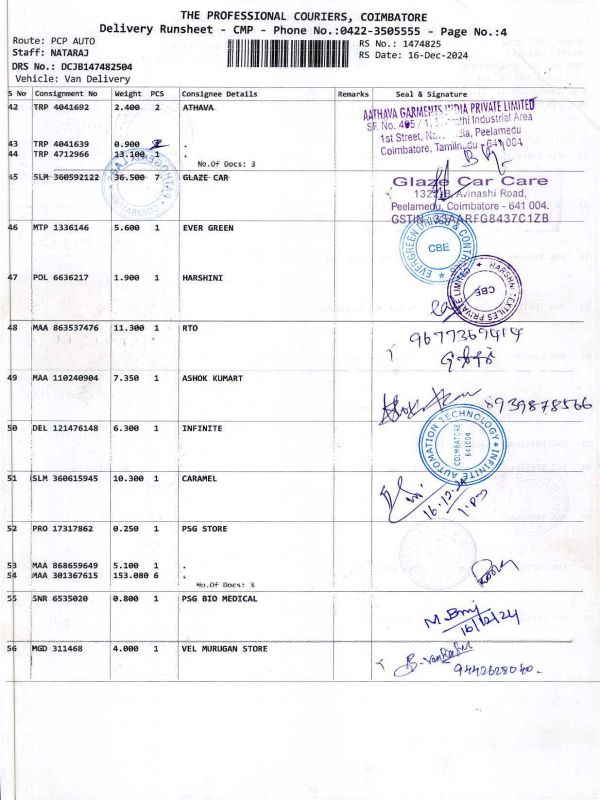 THE PROFESSIONAL COURIERS, COIMBATORE
Delivery Runsheet - CMP - Phone No.:0422-3505555 - Page No.:4
Route: PCP AUTO
RS No.: 1474825
Staff: NATARAJ
RS Date: 16-Dec-2024
DRS No.: DCJB147482504
Vehicle: Van Delivery
S No Consignment No Weight PCS Consignee Details Remarks Seal & Signature
42 TRP 4041692 2.400 2 ATHAVA
AATHAVA GARMENTS INDIA PRIVATE LIMITED
SF. No. 405 / Industrial Area
1st Street, Peelamedu
Coimbatore, Tamilnadu - 641 004
43 TRP 4041639 0.900 .
44 TRP 4712966 13.100 1 .
No.Of Docs: 3
45 SLM 360592122 36.500 7 GLAZE CAR
Glaze Car Care
Avinashi Road,
Peelamedu, Coimbatore - 641 004.
GSTIN : 33AARFG8437C1ZB
46 MTP 1336146 5.600 1 EVER GREEN
CBE
47 POL 6636217 1.900 1 HARSHINI
HARSHNI TEXTILES PRIVATE LIMITED
CBE
48 MAA 863537476 11.300 1 RTO
9677369414
49 MAA 110240904 7.350 1 ASHOK KUMART
8939878566
50 DEL 121476148 6.300 1 INFINITE
INFINITE AUTOMATION TECHNOLOGY
COIMBATORE
641004
51 SLM 360615945 10.300 1 CARAMEL
16.12.24
52 PRO 17317862 0.250 1 PSG STORE
53 MAA 868659649 5.100 1 .
54 MAA 301367615 153.080 6 .
No.Of Docs: 3
55 SNR 6535020 0.800 1 PSG BIO MEDICAL
16/12/24
56 MGD 311468 4.000 1 VEL MURUGAN STORE
9442628040.